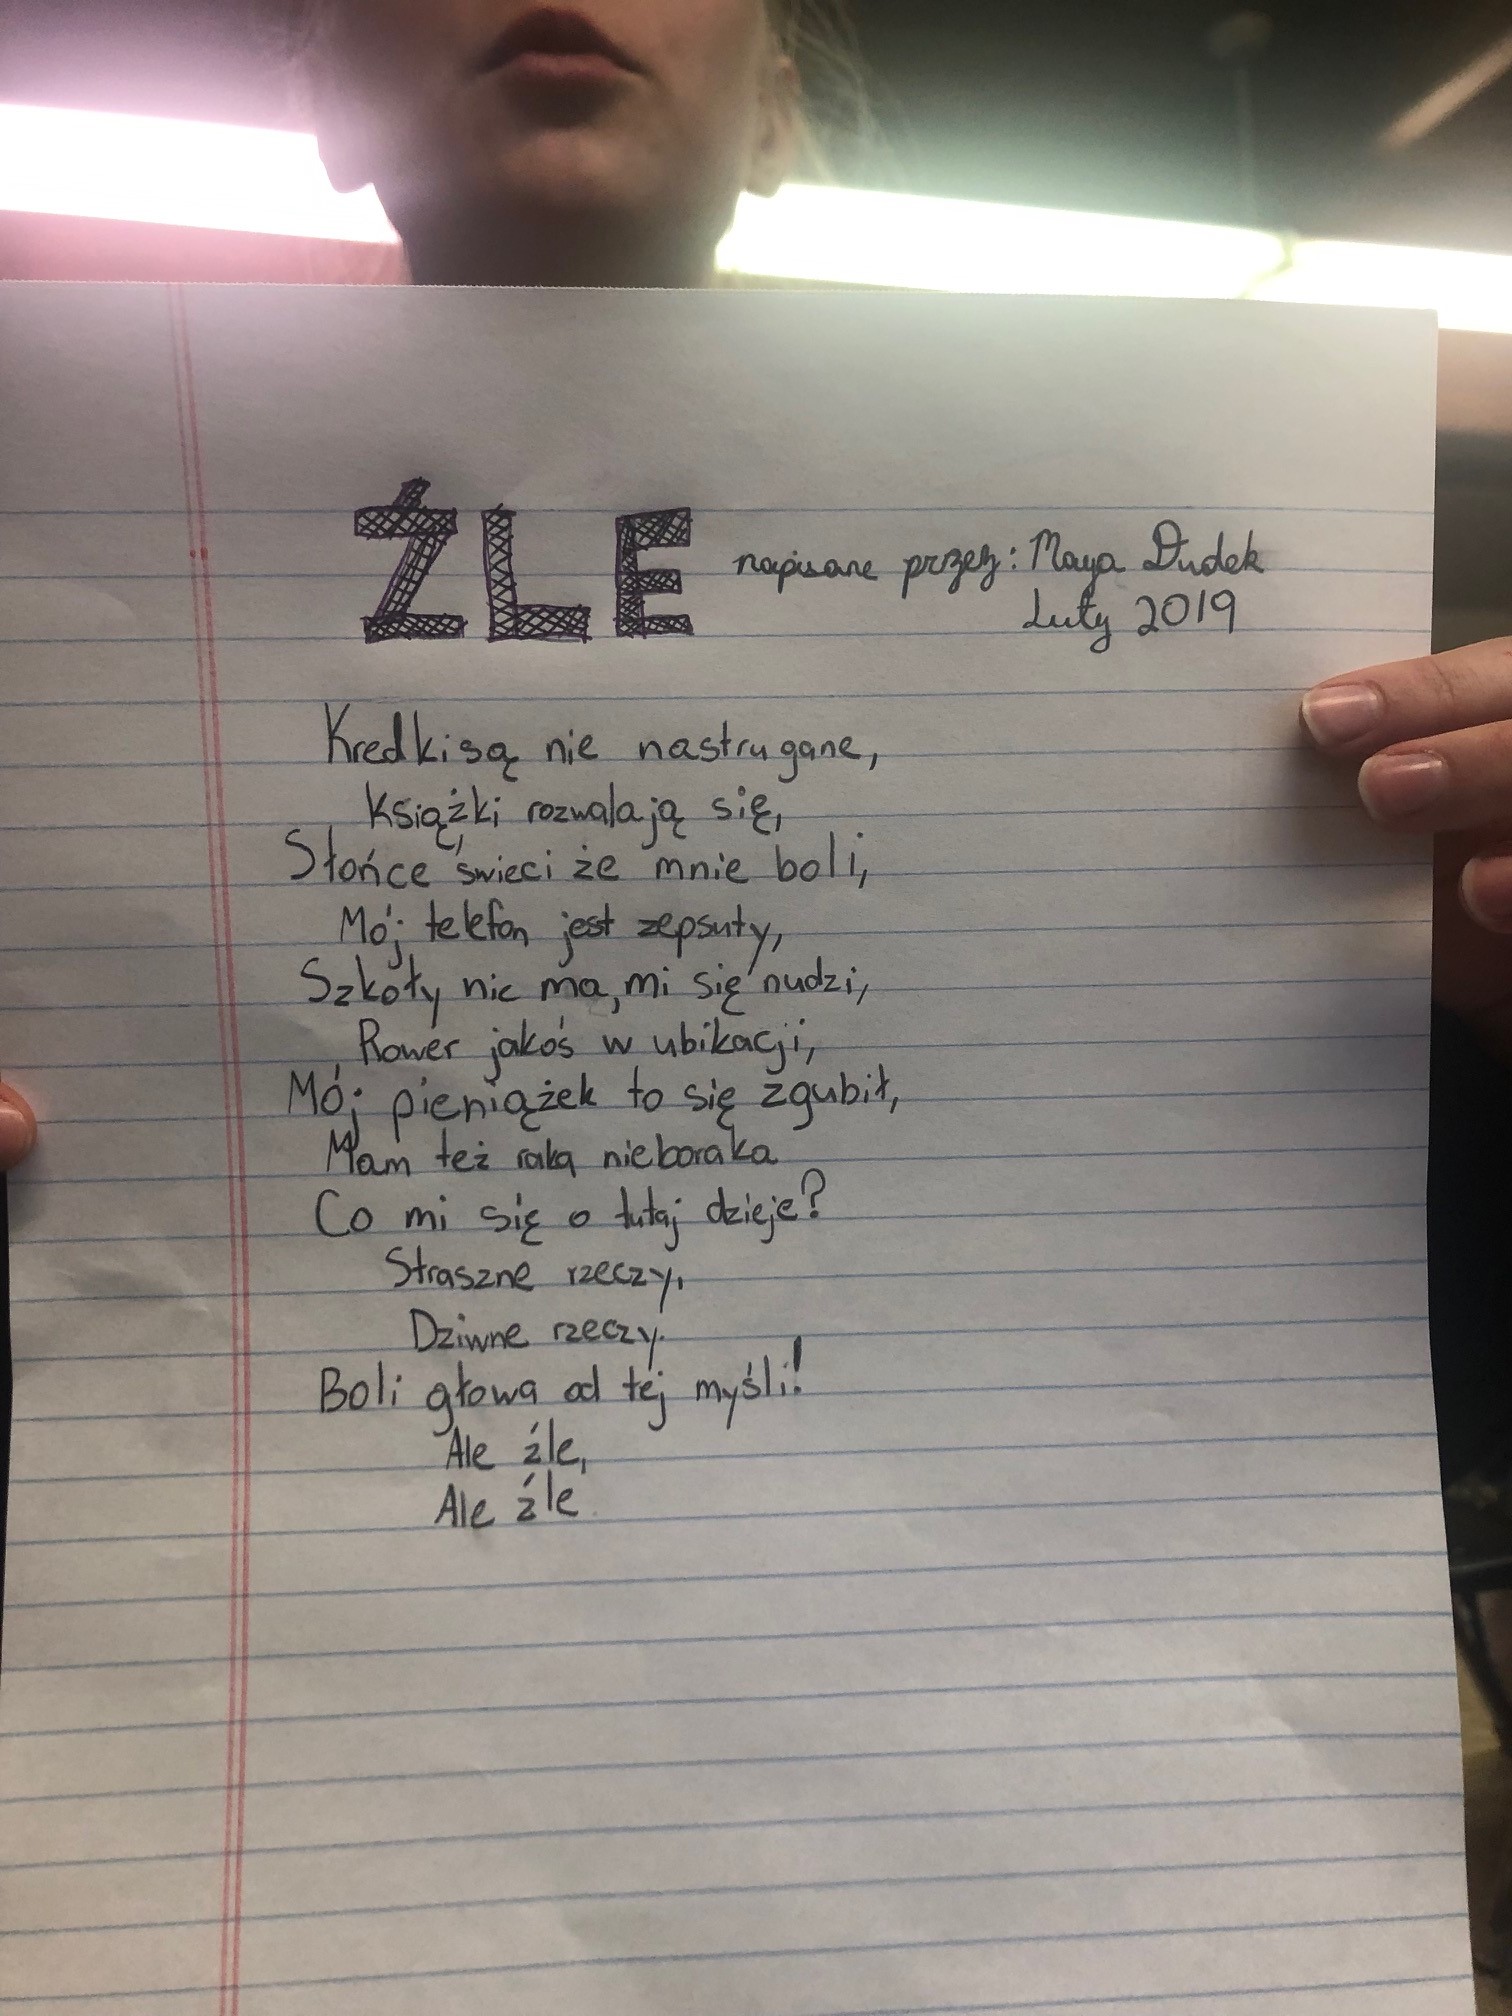 ŹLE napisane przez: Maya Dudek
Luty 2019
Kredki są nie nastrugane,
Książki rozwalają się,
Słońce świeci że mnie boli,
Mój telefon jest zepsuty,
Szkoły nie ma, mi się nudzi,
Rower jakoś w ubikacji,
Mój pieniążek to się zgubił,
Mam też raka nieboraka
Co mi się o tutaj dzieje?
Straszne rzeczy,
Dziwne rzeczy.
Boli głowa od tej myśli!
Ale źle,
Ale źle